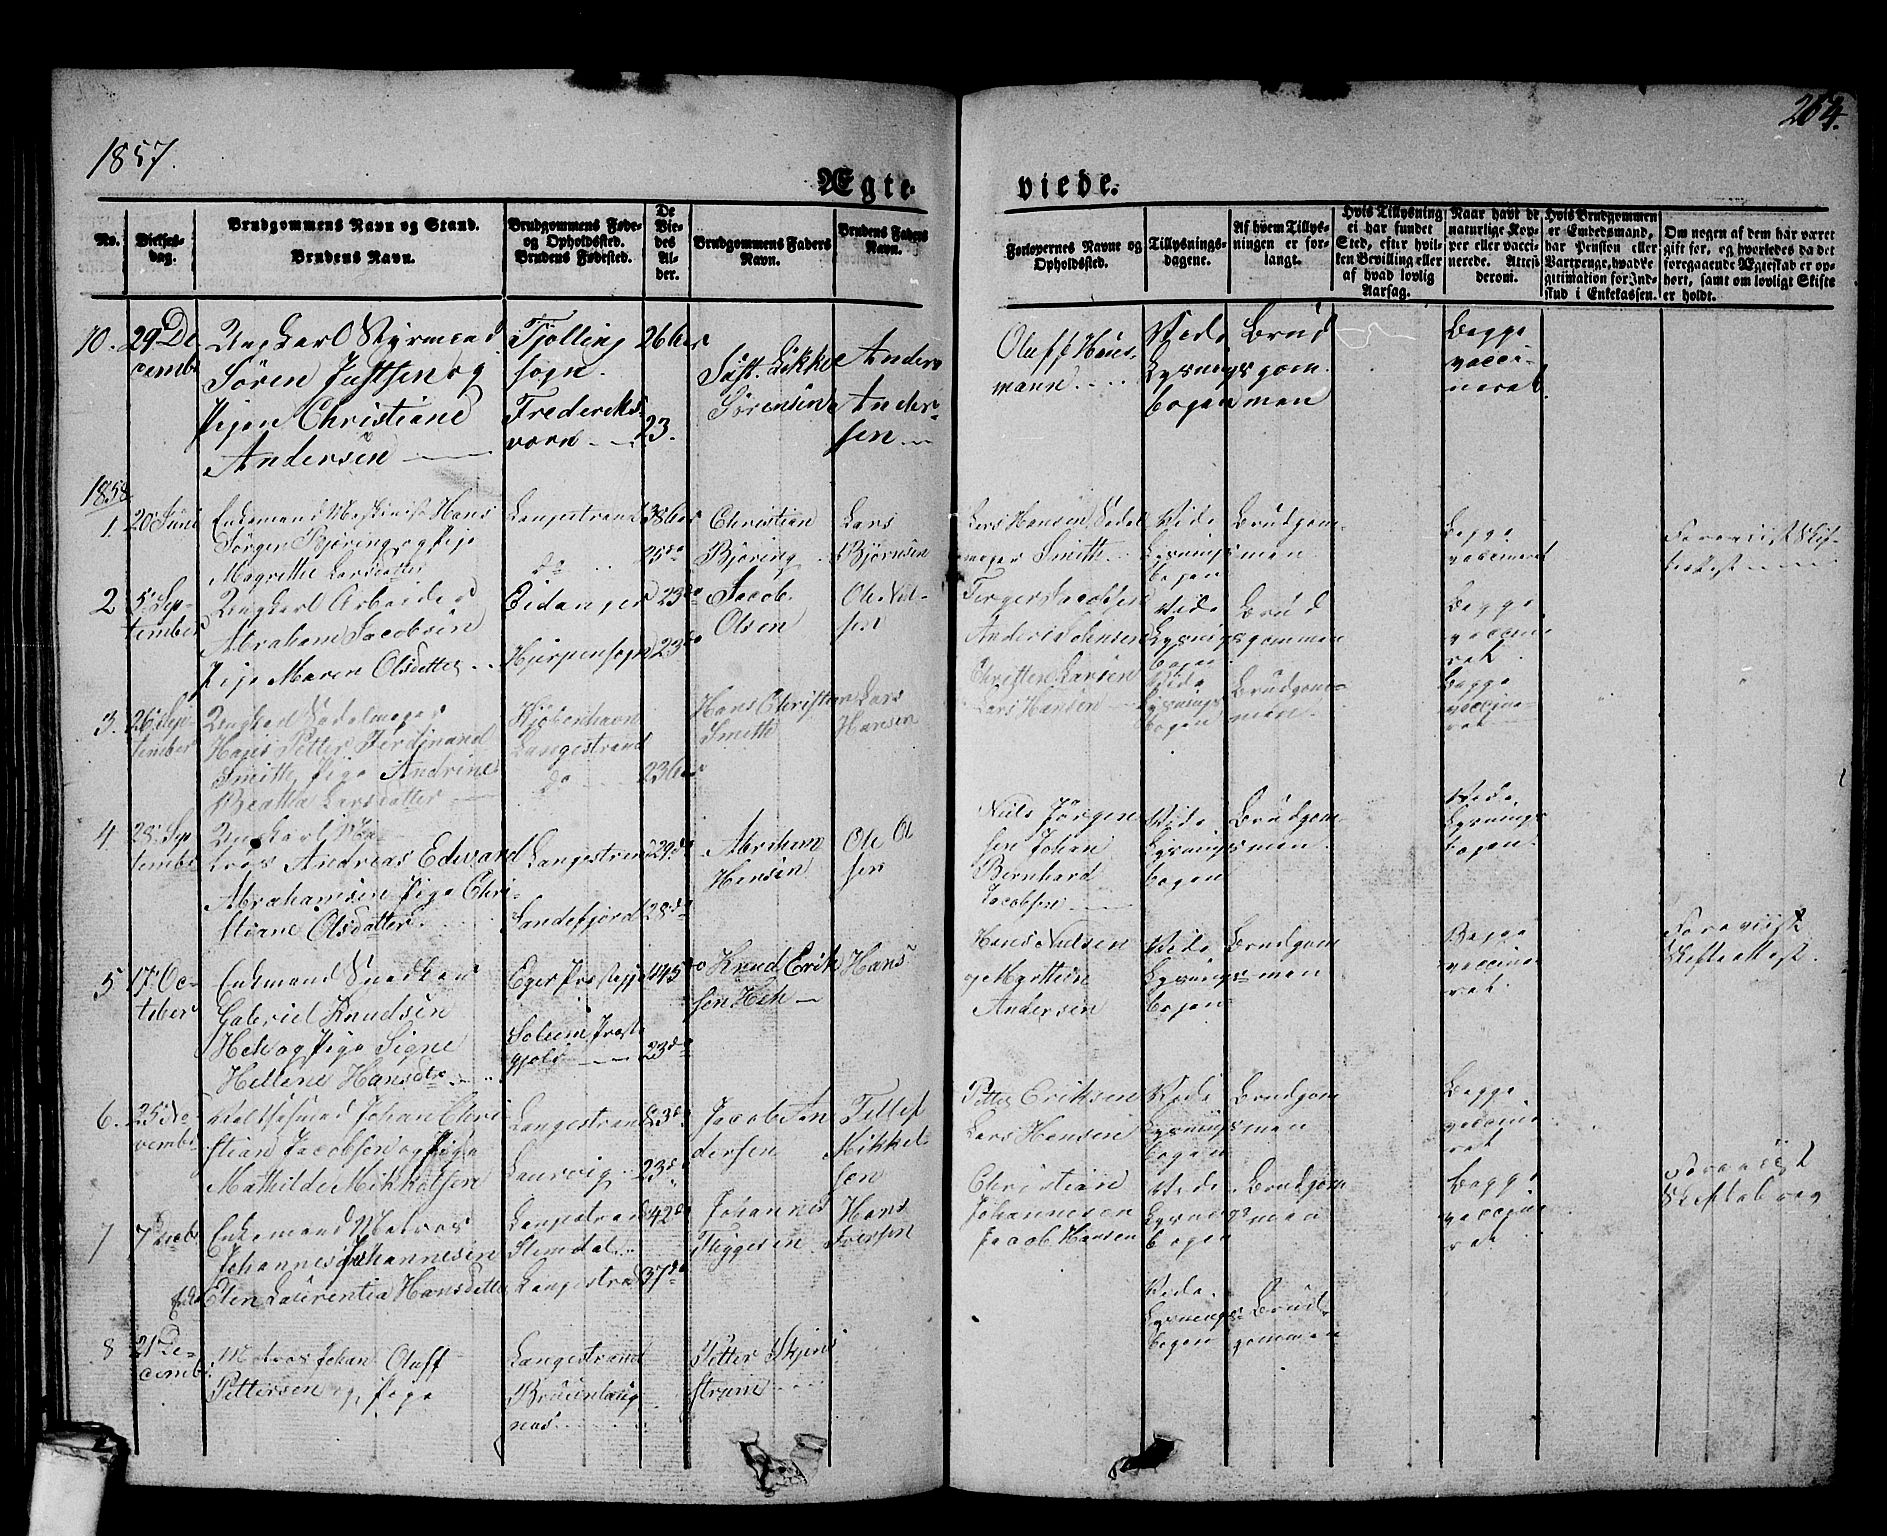 1857.
264.
Ægte-
viede.
No.
Vielses-
dag.
Brudgommens Navn og Stand.
Brudens Navn.
Brudgommens Føde-
og Opholdssted.
Brudens Fødested.
De
Vie-
des
Al-
der.
Brudgommens Faders
Navn.
Brudens Faders
Navn.
Forlovernes Navne og
Opholdssted.
Tillysnings-
dagene.
Af hvem Tillys-
ningen er for-
langt.
Hvis Tillysning
ei har fundet
Sted, efter hvil-
ken Bevilling eller
af hvad lovlig
Aarsag.
Naar havt de
naturlige Kop-
per eller vacci-
nerede. Attest
derom.
Hvis Brudgommen
er Embedsmand,
har Pension eller
Vartpenge, hvad Le-
gitimation for Ind-
skud i Enkekassen.
Om nogen af dem har været
gift før, og hvorledes da det
foregaaende Ægteskab er op-
hørt, samt om lovligt Skifte
er holdt.
10.
29 De
cemb
Ungkarl Styrmand
Søren Justsen og
Pigen Christiane
Andersen
Tjølling
sogn.
Frederiks
værn
26 aar
23.
Just Løkke
Sørensen
Anders
Ander-
sen
Oluff Haus-
mann
Vide
Lysnings
bogen
Brud
gom
men
Begge
vacci-
neret
1858
1.
20 Juni
Enkemand Maskinist Hans
Jørgen Bjøring og Pige
Magrethe Larsdatter
Langestrand
do
38 aar
25 do
Christian
Bjøring
Lars
Bjørnsen
Lars Hansen Sadel
mager Smitth
Vide
Lysnings
bogen
Brudgom-
men
Begge
vaccineret
2
5 Sep-
tember
Ungkarl Arbeider
Abraham Jacobsen
Pige Maren Olsdatter
Eidanger
Hjerpensogn
23 do
23 do
Jacob
Olsen
Ole Nil-
sen
Jacobsen
Anders Jensen
Vide
Lysnings
bogen
Brud
gommen
Begge
vaccine
ret
3.
26 Sep
tember
Ungkarl Sadelmager
Hans Petter Ferdinand
Smitth, Pige Andrine
Beatha Larsdatter
Kjøbenhavn
Langestrand
do
23 aar
Hans Christian
Smitth
Lars
Hansen
Christen Larsen
Lars Hansen
Vide
Lysnings
bogen
Brudgom-
men
Begge
vaccine
ret
4
28 Sep
tember
Ungkarl Ma-
tros Andreas Edvard
Abrahamsen Pige Chri-
stiane Olsdatter
Langestrand
Sandefjord
29 do
28 do
Abraham
Hansen
Ole Ol
sen
Niels Jørgen
sen Johan
Bernhard
Jacobsen
Vide
Lysnings
bogen
Brudgom-
men
Vide
Lysnings
bogen
5
17 Oc-
tober
Enkemand Snedker
Gabriel Knudsen
Hek og Pige Signe
Hellene Hansdtr
Eger Præstegj
Solum Præst
gjeld
45 do
23 do
Knud Erik
sen Hek
Hans
Hans Nielsen
og Matthias
Andersen
Vide
Lysnings
bogen
Brudgom
men
Begge
vaccine
ret
6.
25 No
vemb
Johan Chri
stian Jacobsen og Pige
Mathilde Mikkelsen
Langestrand
Laurvig
23 do
23 do
Jacob An
dersen
Tellef
Mikkel
sen
Petter Eriksen
Lars Hansen
Vide
Lysnings
bogen
Brudgom
men
Begge
vaccine
ret
7
7 Decb
Enkemand Matros
Johannes Johannesen
Enke Elen Laurentia Hansdatter
Langestrand
Slemdal
Langestrad
42 do
37 do
Johannes
Tryggesen
Hans
Iversen
Christian
Johannesen
Jacob Hansen
Vide
Lysnings
bogen
Brudgom
men
Begge
vaccine
ret
8
21 De-
cemb
Matros Johan Oluff
Pettersen og Pige
Langestrand
Petter
Vide
Lysnings
bogen
Brud
gommen